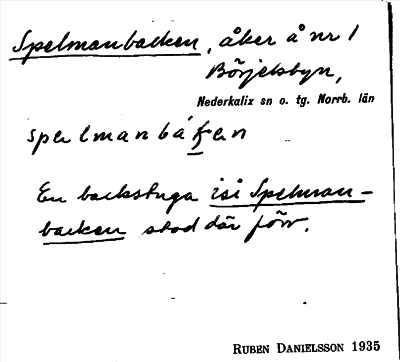 Spelmanbacken, åker å nr 1
Börjelsbyn,
Nederkalix sn o. tg. Norrb. län
spelmanbáken
En backstuga isi Spelman-
backen stod där förr.
RUBEN DANIELSSON 1935